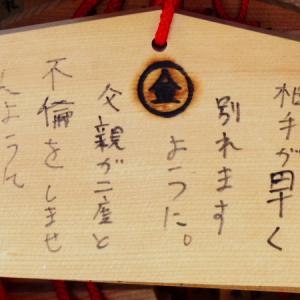 相手が早く
別れます
ように。
金
父親が二度と
不倫をしませ
んように